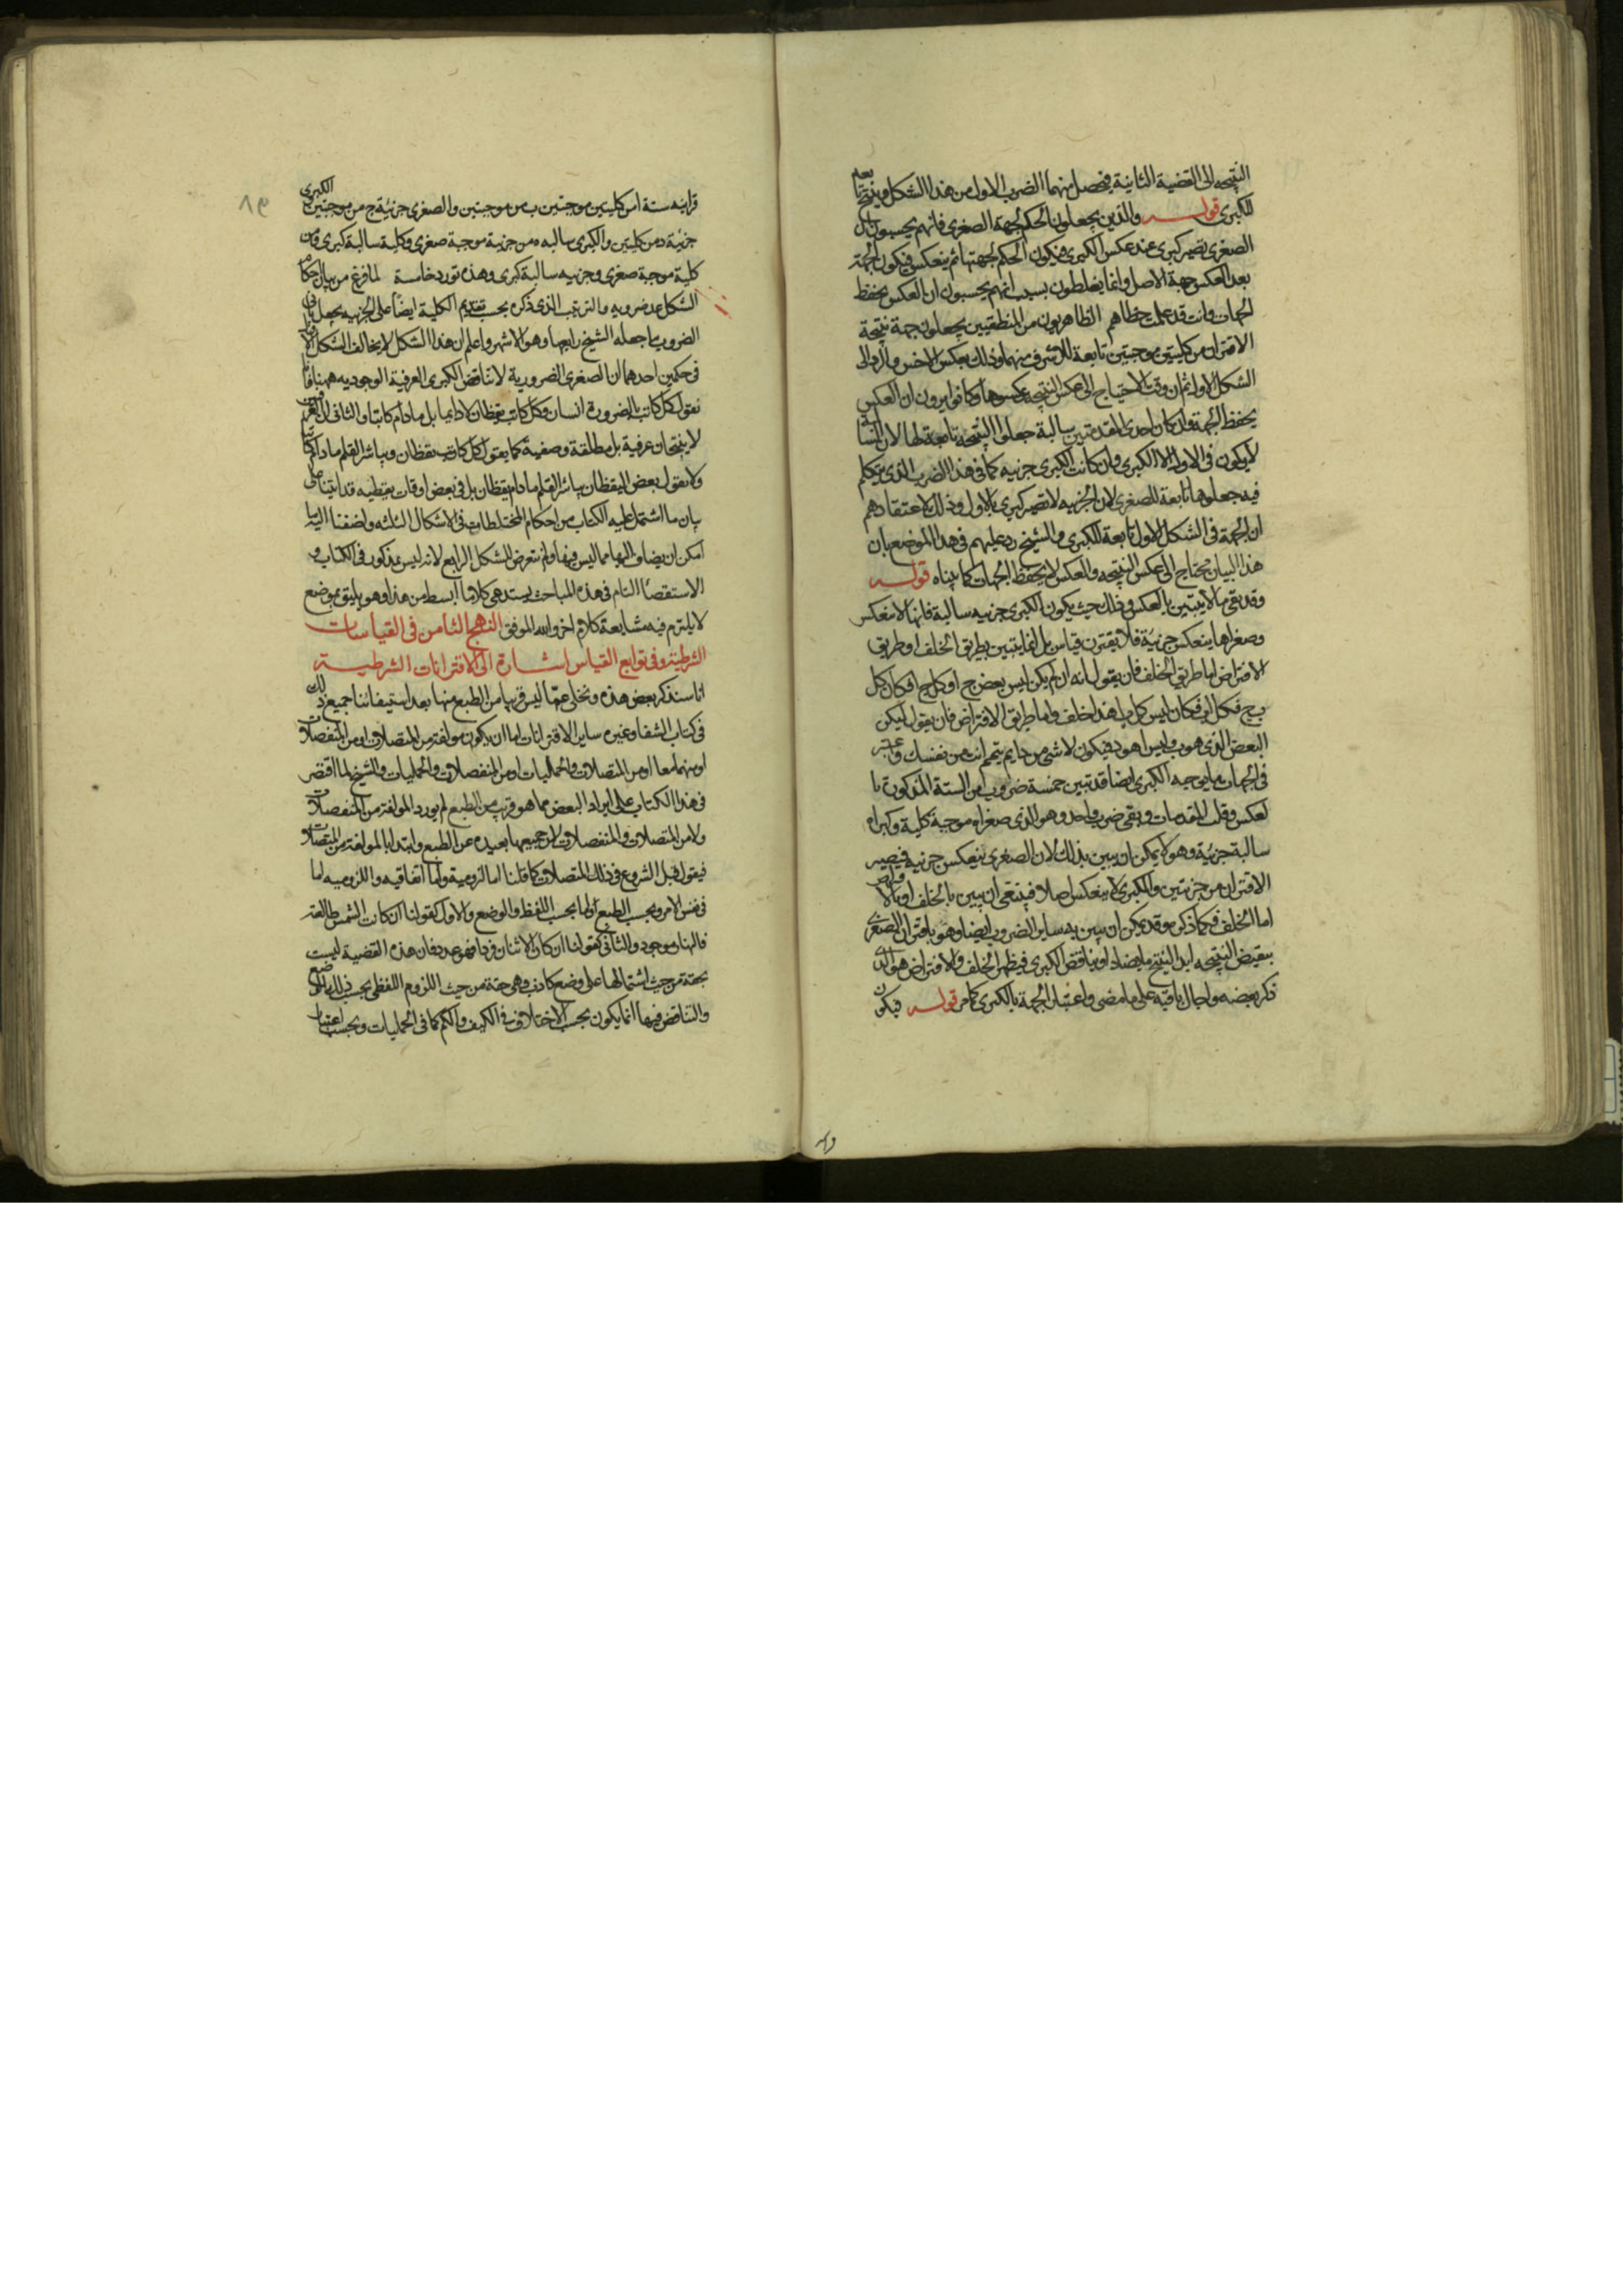 النتيجه الى القضية الثانية فيحصل منهما الضرب الاول من هذا الشكل وينتج بعد
الكبرى قوله والذين يجعلون الحكم لجهة الصغرى فانهم يحسبون ان
الصغرى تصير كبرى عند عكس الكبرى فيكون الحكم لجهتها ثم ينعكس فيكون الجهة
بعد العكس جهة الاصل وانما يغلطون بسبب انهم يحسبون ان العكس يحفظ
الجهات وانت قد علمت خطاهم الظاهريون من المنطقيين يجعلون جهة نتيجة
الاقتران من كليتين موجبتين تابعة للاشرف منهما وذلك بعكس الاخس والرد الى
الشكل الاول ثم ان وقت الاحتياج الى عكس النتيجه عكسوها وكانوا يرون ان العكس
يحفظ الجهة وان كان احدى المقدمتين سالبة جعلوا النتيجه تابعة لها لان السالبة
لا يكون فى الاول الا الكبرى وان كانت الكبرى جزئيه كما فى هذا الضرب الذى يتكلم
فيه جعلوها تابعة للصغرى لان الجزئيه لا تصير كبرى بالاول وذلك لاعتقادهم
ان الجهة فى الشكل الاول تابعة للكبرى والشيخ رد عليهم فى هذا الموضع بان
هذا البيان محتاج الى عكس النتيجه والعكس لا يحفظ الجهات كما بيناه قوله
وقد بقى ما لا يتبين بالعكس وذلك حيث يكون الكبرى جزئيه سالبة فانها لا تنعكس
وصغراها ينعكس جزئية فلا يقترن قياس بل انما يتبين بطريق الخلف او طريق
الافتراض اما طريق الخلف فان يقول انه ان لم يكن ليس بعض ج ا وكل ج ا فكان كل
ب ج فكل ب ا وكان ليس كل ب ا هذا خلف واما طريق الافتراض فان يقول ليكن
البعض الذى هو ب وليس ا هو د فيكون لا شى من د ا ثم يتمم انت من نفسك
فى الجهات ما يوجبه الكبرى ايضا قد تبين خمسة ضروب من الستة المذكورة با
لعكس وقلب المقدمات وبقى ضرب واحد وهو الذى صغراه موجبة كلية وكبراه
سالبة جزئية وهو لا يمكن ان يبين بذلك لان الصغرى ينعكس جزئيه فيصير
الاقتران من جزئيتين والكبرى لا ينعكس اصلا فينبغى ان يبين بالخلف او بالافتراض
اما الخلف فكما ذكره وقد يمكن ان يبين به ساير الضروب ايضا وهو باقتران الصغرى
بنقيض النتيجه ابدا لينتج ما يضاد او يناقض الكبرى فيظهر الخلف والافتراض هو الذى
ذكر بعضه واحال باقيه على ما مضى واعتبار الجهة بالكبرى كما مر قوله فيكون
٨٩
قراينه ستة ا من كليتين موجبتين ب من موجبتين والصغرى جزئية ج من موجبتين والكبرى
جزئية د من كليتين والكبرى سالبه ه من جزئية موجبة صغرى وكلية سالبة كبرى و من
كلية موجبة صغرى وجزئيه سالبة كبرى وهذه تورد خامسة لما فرغ من بيان احكام
الشكل عد ضروبه والترتيب الذى ذكره بحسب تقديم الكلية ايضا على الجزئيه يجعل
الضروب ما جعله الشيخ رابعها وهو الاشهر واعلم ان هذا الشكل لا يخالف الشكل الاول
فى حكمين احدهما ان الصغرى الضرورية لا تناقض الكبرى العرفية الوجوديه ههنا فانا
نقول كل كاتب بالضرورة انسان وكل كاتب يقظان لا دايما بل ما دام كاتبا والثانى ان العرفيتين
لا ينتجان عرفية بل مطلقة وصفية كما يقول كل كاتب يقظان ومباشر القلم ما دام كاتبا
ولا يقول بعض اليقظان مباشر القلم ما دام يقظان بل فى بعض اوقات يقظيه قد اتينا على
بيان ما اشتمل عليه الكتاب من احكام المختلطات فى الاشكال الثلثه واضفنا اليها
امكن ان يضاف اليها مما ليس فيها ولم نتعرض للشكل الرابع لانه ليس مذكور فى الكتاب و
الاستقصا التام فى هذه المباحث يستدعى كلاما ابسط من هذا وهو يليق بموضع
لا يلتزم فيه مشايعة كلام اخر والله الموفق النهج الثامن فى القياسات
الشرطية وفى توابع القياس اشارة الى الاقترانات الشرطية
انا سنذكر بعض هذه ونخلى عما ليس قريبا من الطبع منها بعد استيفائنا جميع ذلك
فى كتاب الشفا وغيره ساير الاقترانات اما ان يكون مولفة من المتصلات او من المنفصلات
او منهما معا او من المتصلات والحمليات او من المنفصلات والحمليات والشيخ لما اقتصر
فى هذا الكتاب على ايراد البعض مما هو قريب من الطبع لم يورد المولفة من المنفصلات
ولا من المتصلات والمنفصلات لان جميعها بعيده عن الطبع وابتدا بالمولفة من المتصلات
فيقول قبل الشروع فى ذلك المتصلات كما قلنا اما لزومية واما اتفاقيه واللزوميه اما
فى نفس الامر وبحسب الطبع واما بحسب اللفظ والوضع والاول كقولنا ان كانت الشمس طالعة
فالنهار موجود والثانى كقولنا ان كان الاثنان فردا فهو عدد فان هذه القضية ليست
بحقة من حيث اشتمالها على وضع كاذب وهى حقة من حيث اللزوم اللفظى بحسب ذلك الوضع
والتناقض فيها انما يكون بحسب الاختلاف فى الكيف والكم كما فى الحمليات وبحسب اعتبار